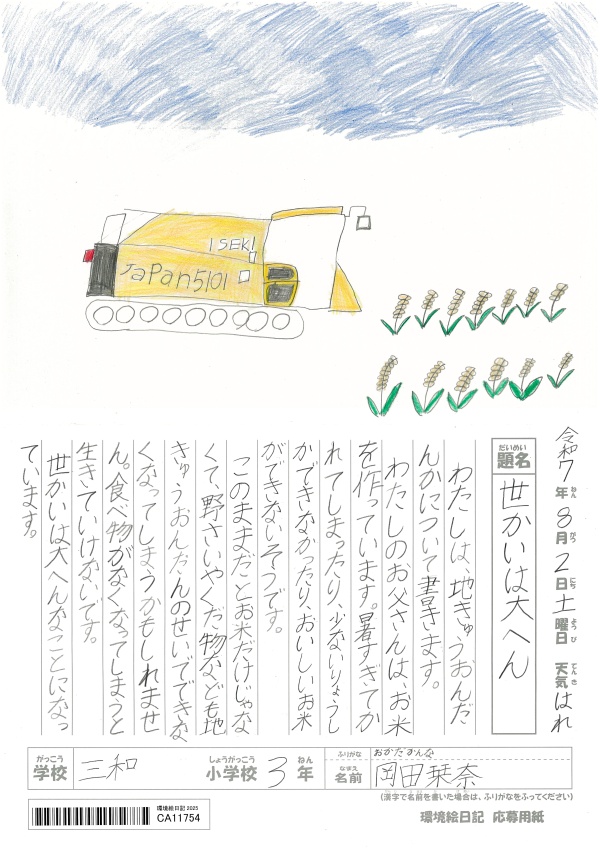 ISEKI
Japan5101
令和7年8月2日土曜日 天気はれ
ねん がつ にち ようび てんき
だいめい
題名 世かいは大へん
わたしは、地きゅうおんだ
んかについて書きます。
わたしのお父さんは、お米
を作っています。暑すぎてか
れてしまったり、少ないりょうし
かできなかったり、おいしいお米
ができないそうです。
このままだとお米だけじゃな
くて、野さいやくだ物なども地
きゅうおんだんのせいでできな
くなってしまうかもしれませ
ん。食べ物がなくなってしまうと
生きていけないです。
世かいは大へんなことになっ
ています。
がっこう しょうがっこう ねん
学校 三和 小学校 3年
ふりがな おかだ かんな
なまえ
名前 岡田栞奈
(漢字で名前を書いた場合は、ふりがなをふってください)
環境絵日記 2025
CA11754
環境絵日記 応募用紙